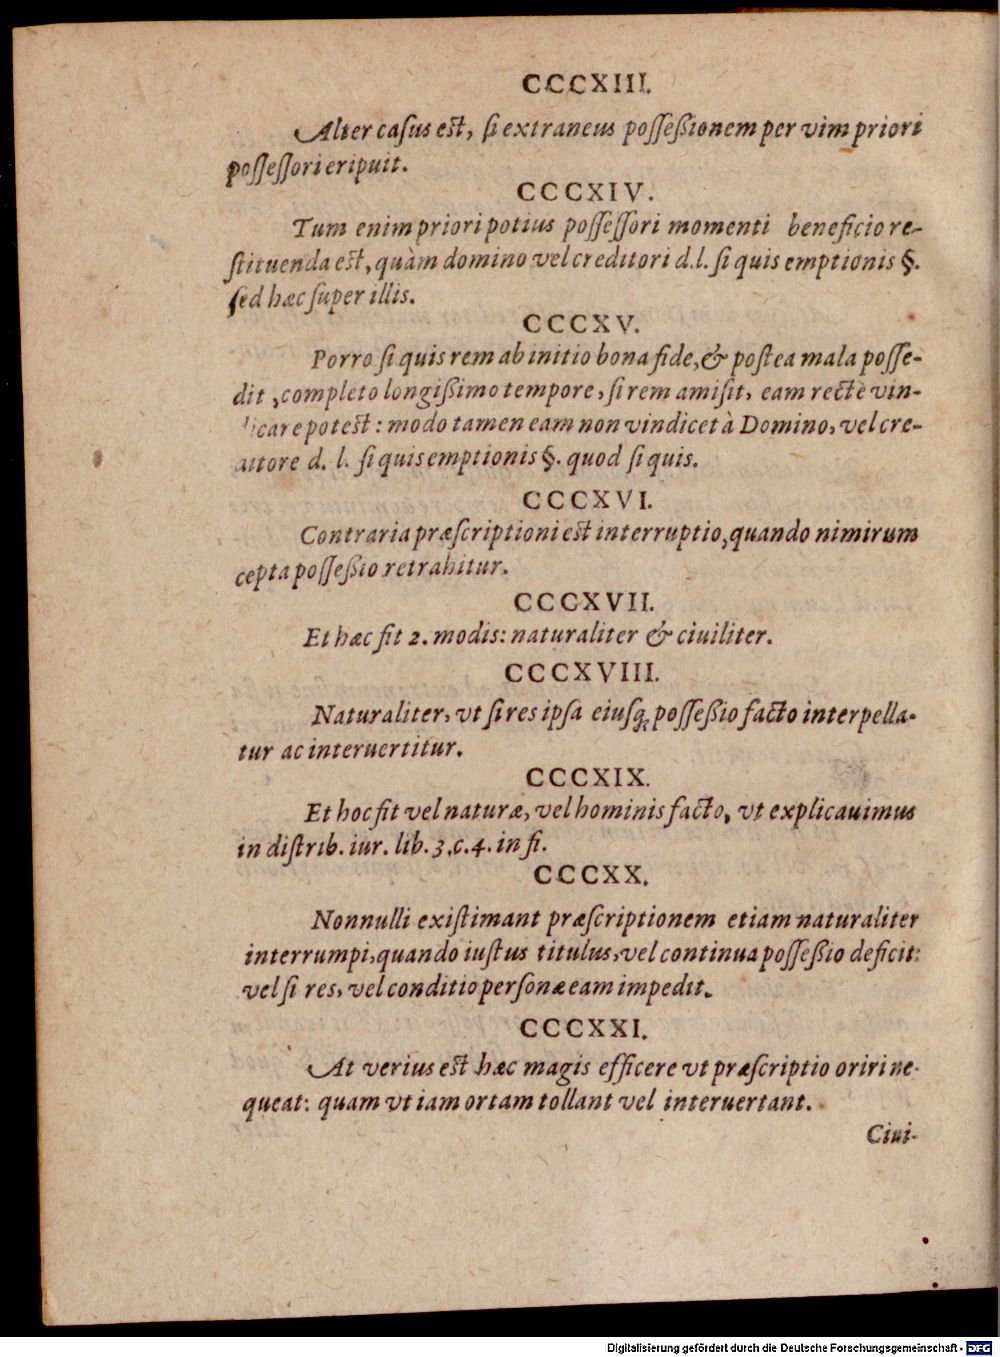 CCCXIII.
Alter casus est, si extraneus possessionem per vim priori
possessori eripuit.
CCCXIV.
Tum enim priori potius possessori momenti beneficio re-
stituenda est, quàm domino vel creditori d.l. si quis emptionis §.
sed hæc super illis.
CCCXV.
Porro si quis rem ab initio bona fide, & postea mala posse-
dit, completo longissimo tempore, si rem amisit, eam rectè vin-
dicare potest: modo tamen eam non vindicet à Domino, vel cre-
ditore d. l. si quis emptionis §. quod si quis.
CCCXVI.
Contraria præscriptioni est interruptio, quando nimirum
cepta possessio retrahitur.
CCCXVII.
Et hæc fit 2. modis: naturaliter & ciuiliter.
CCCXVIII.
Naturaliter, vt si res ipsa eiusq; possessio facto interpella-
tur ac interuertitur.
CCCXIX.
Et hoc fit vel naturæ, vel hominis facto, vt explicauimus
in distrib. iur. lib. 3. c. 4. in fi.
CCCXX.
Nonnulli existimant præscriptionem etiam naturaliter
interrumpi, quando iustus titulus, vel continua possessio deficit:
vel si res, vel conditio personæ eam impedit.
CCCXXI.
At verius est hæc magis efficere vt præscriptio oriri ne-
queat: quam vt iam ortam tollant vel interuertant.
Ciui-
Digitalisierung gefördert durch die Deutsche Forschungsgemeinschaft - DFG